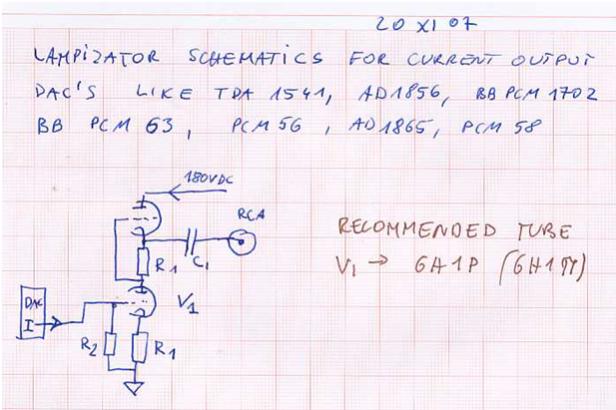 20 XI 07
LAMPIZATOR SCHEMATICS FOR CURRENT OUTPUT
DAC'S LIKE TDA 1541, AD1856, BB PCM 1702
BB PCM 63, PCM 56, AD1865, PCM 58
180VDC
RCA
C1
R1
RECOMMENDED TUBE
V1 → 6H1P (6H1П)
V1
DAC
I
R2
R1